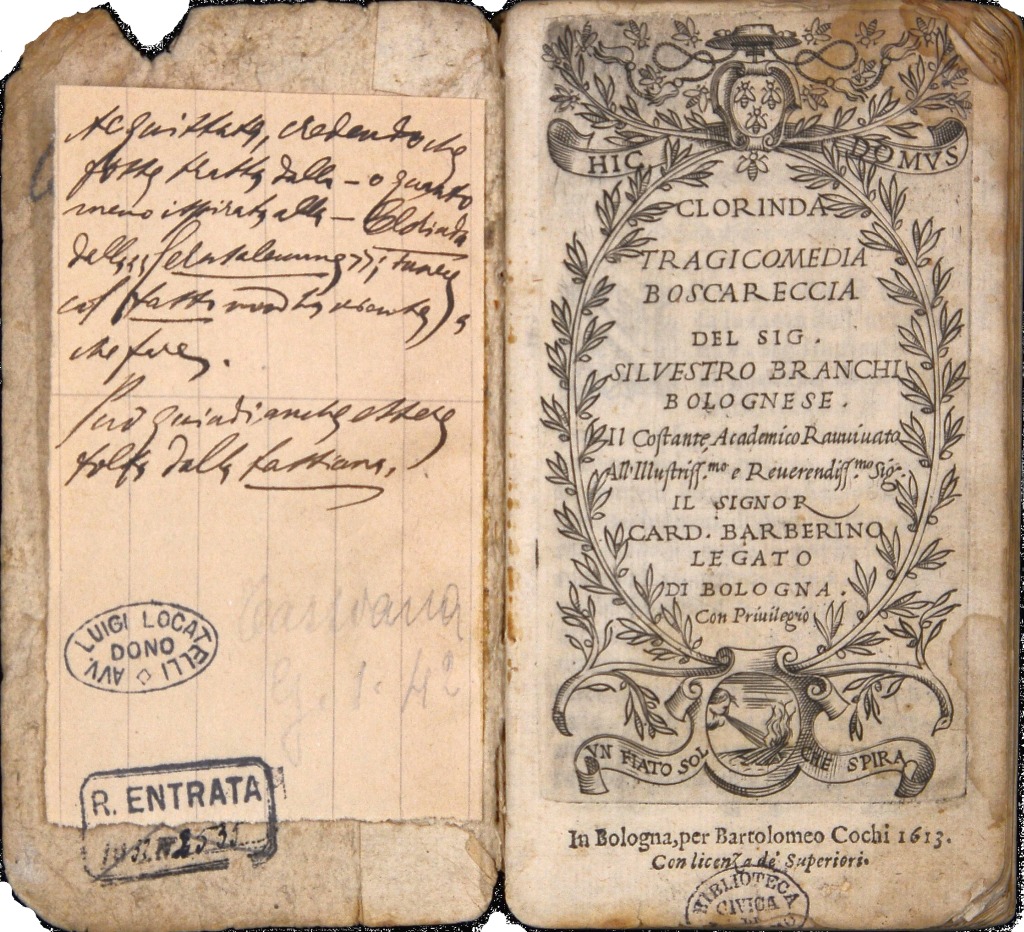 Acquistata, credendo che
fosse tratta dalla – o quanto
meno ispirata alla – Clorinda
della „Gerusalemme";
col Tasso non ha
che fare.
Può quindi anche essere
tolta dalla tassiana.
Tassiana
1. 4²
AVV. LUIGI LOCATELLI
DONO
R. ENTRATA
HIC DOMVS
CLORINDA
TRAGICOMEDIA
BOSCARECCIA
DEL SIG.
SILVESTRO BRANCHI
BOLOGNESE.
Il Costante Academico Rauuiuato
All'Illustriss.mo e Reuerendiss.mo Sig.
IL SIGNOR
CARD. BARBERINO
LEGATO
DI BOLOGNA.
Con Priuilegio
VN FIATO SOL CHE SPIRA
In Bologna, per Bartolomeo Cochi 1613.
Con licenza de' Superiori.
BIBLIOTECA
CIVICA